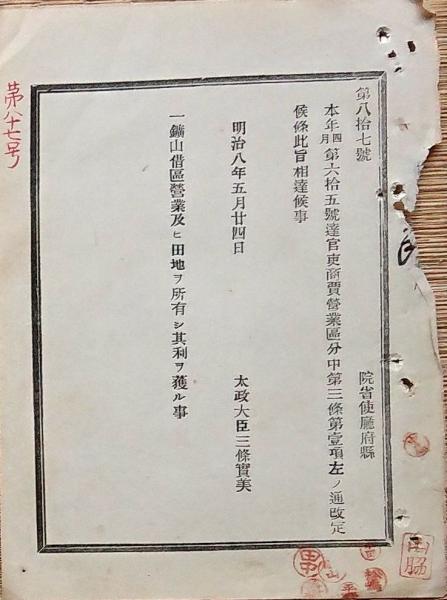 第八拾七號
院省使廳府縣
本年四月第六拾五號達官吏商賈營業區分中第三條第壹項左ノ通改定
候條此旨相達候事
明治八年五月廿四日
太政大臣三條實美
一鑛山借區營業及ヒ田地ヲ所有シ其利ヲ獲ル事
第八十七号